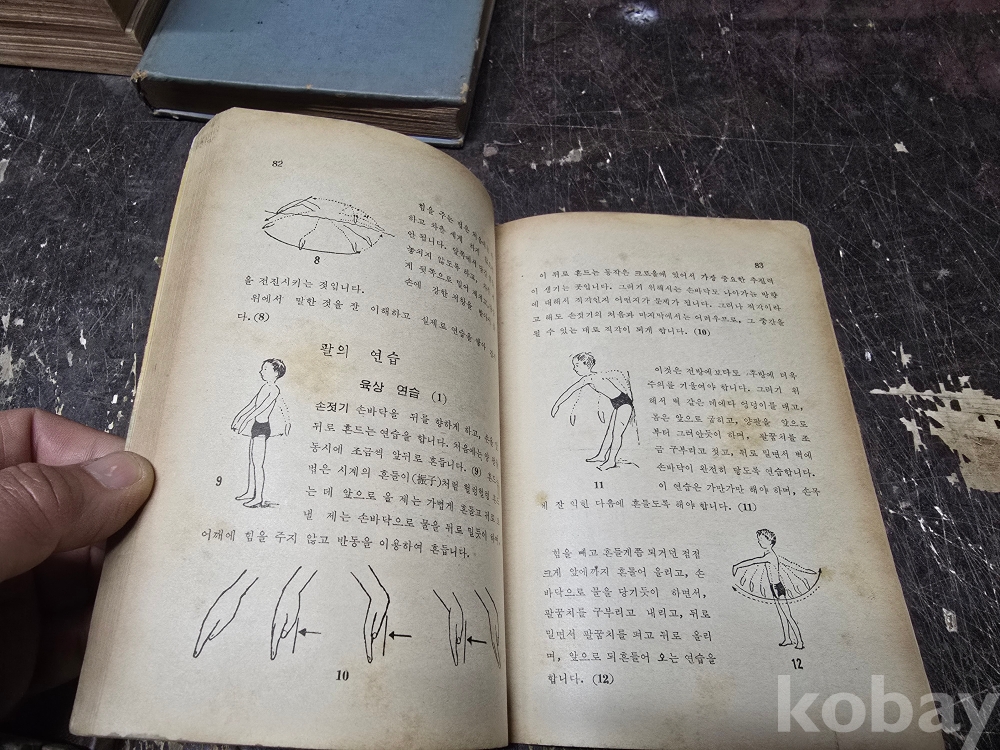 82
힘을 주는 법은 처음에는
하고 차츰 세게 하지
안 됩니다. 앞쪽에서
놓치지 않도록 하고,
게 뒷쪽으로 밀어
손에 강한 저항을
8
을 전진시키는 것입니다.
위에서 말한 것을 잘 이해하고 실제로 연습을
다. (8)
팔의 연습
육상 연습 (1)
손젓기 손바닥을 뒤를 향하게 하고,
뒤로 흔드는 연습을 합니다. 처음에는
동시에 조금씩 앞뒤로 흔듭니다. (9)
먹은 시계의 흔들이(振子)처럼
는 데 앞으로 올 제는 가볍게 흔들고 뒤로
낼 제는 손바닥으로 물을 뒤로 밀듯이
어깨에 힘을 주지 않고 반동을 이용하여 흔듭니다.
9
10
83
이 뒤로 흔드는 동작은 크로올에 있어서 가장 중요한 추진력
이 생기는 곳입니다. 그러기 위해서는 손바닥도 나아가는 방향
에 대해서 직각인지 어떤지가 문제가 됩니다. 그러나 직각이라
고 해도 손젓기의 처음과 마지막에서는 어려우므로, 그 중간을
될 수 있는 데로 직각이 되게 합니다. (10)
이것은 전방에보다도 후방에 더욱
주의를 기울여야 합니다. 그러기 위
해서 벽 같은 데에다 엉덩이를 대고,
몸은 앞으로 굽히고, 양팔을 앞으로
부터 그러안듯이 하며, 팔꿈치를 조
금 구부리고 젓고, 뒤로 밀면서 벽에
손바닥이 완전히 닿도록 연습합니다.
11
이 연습은 가만가만 해야 하며, 손목
에 잘 익힌 다음에 흔들도록 해야 합니다. (11)
힘을 빼고 흔들게쯤 되거던 점점
크게 앞에까지 흔들어 올리고, 손
바닥으로 물을 당기듯이 하면서,
팔꿈치를 구부리고 내리고, 뒤로
밀면서 팔꿈치를 펴고 뒤로 올리
며, 앞으로 되흔들어 오는 연습을
합니다. (12)
12
kobay